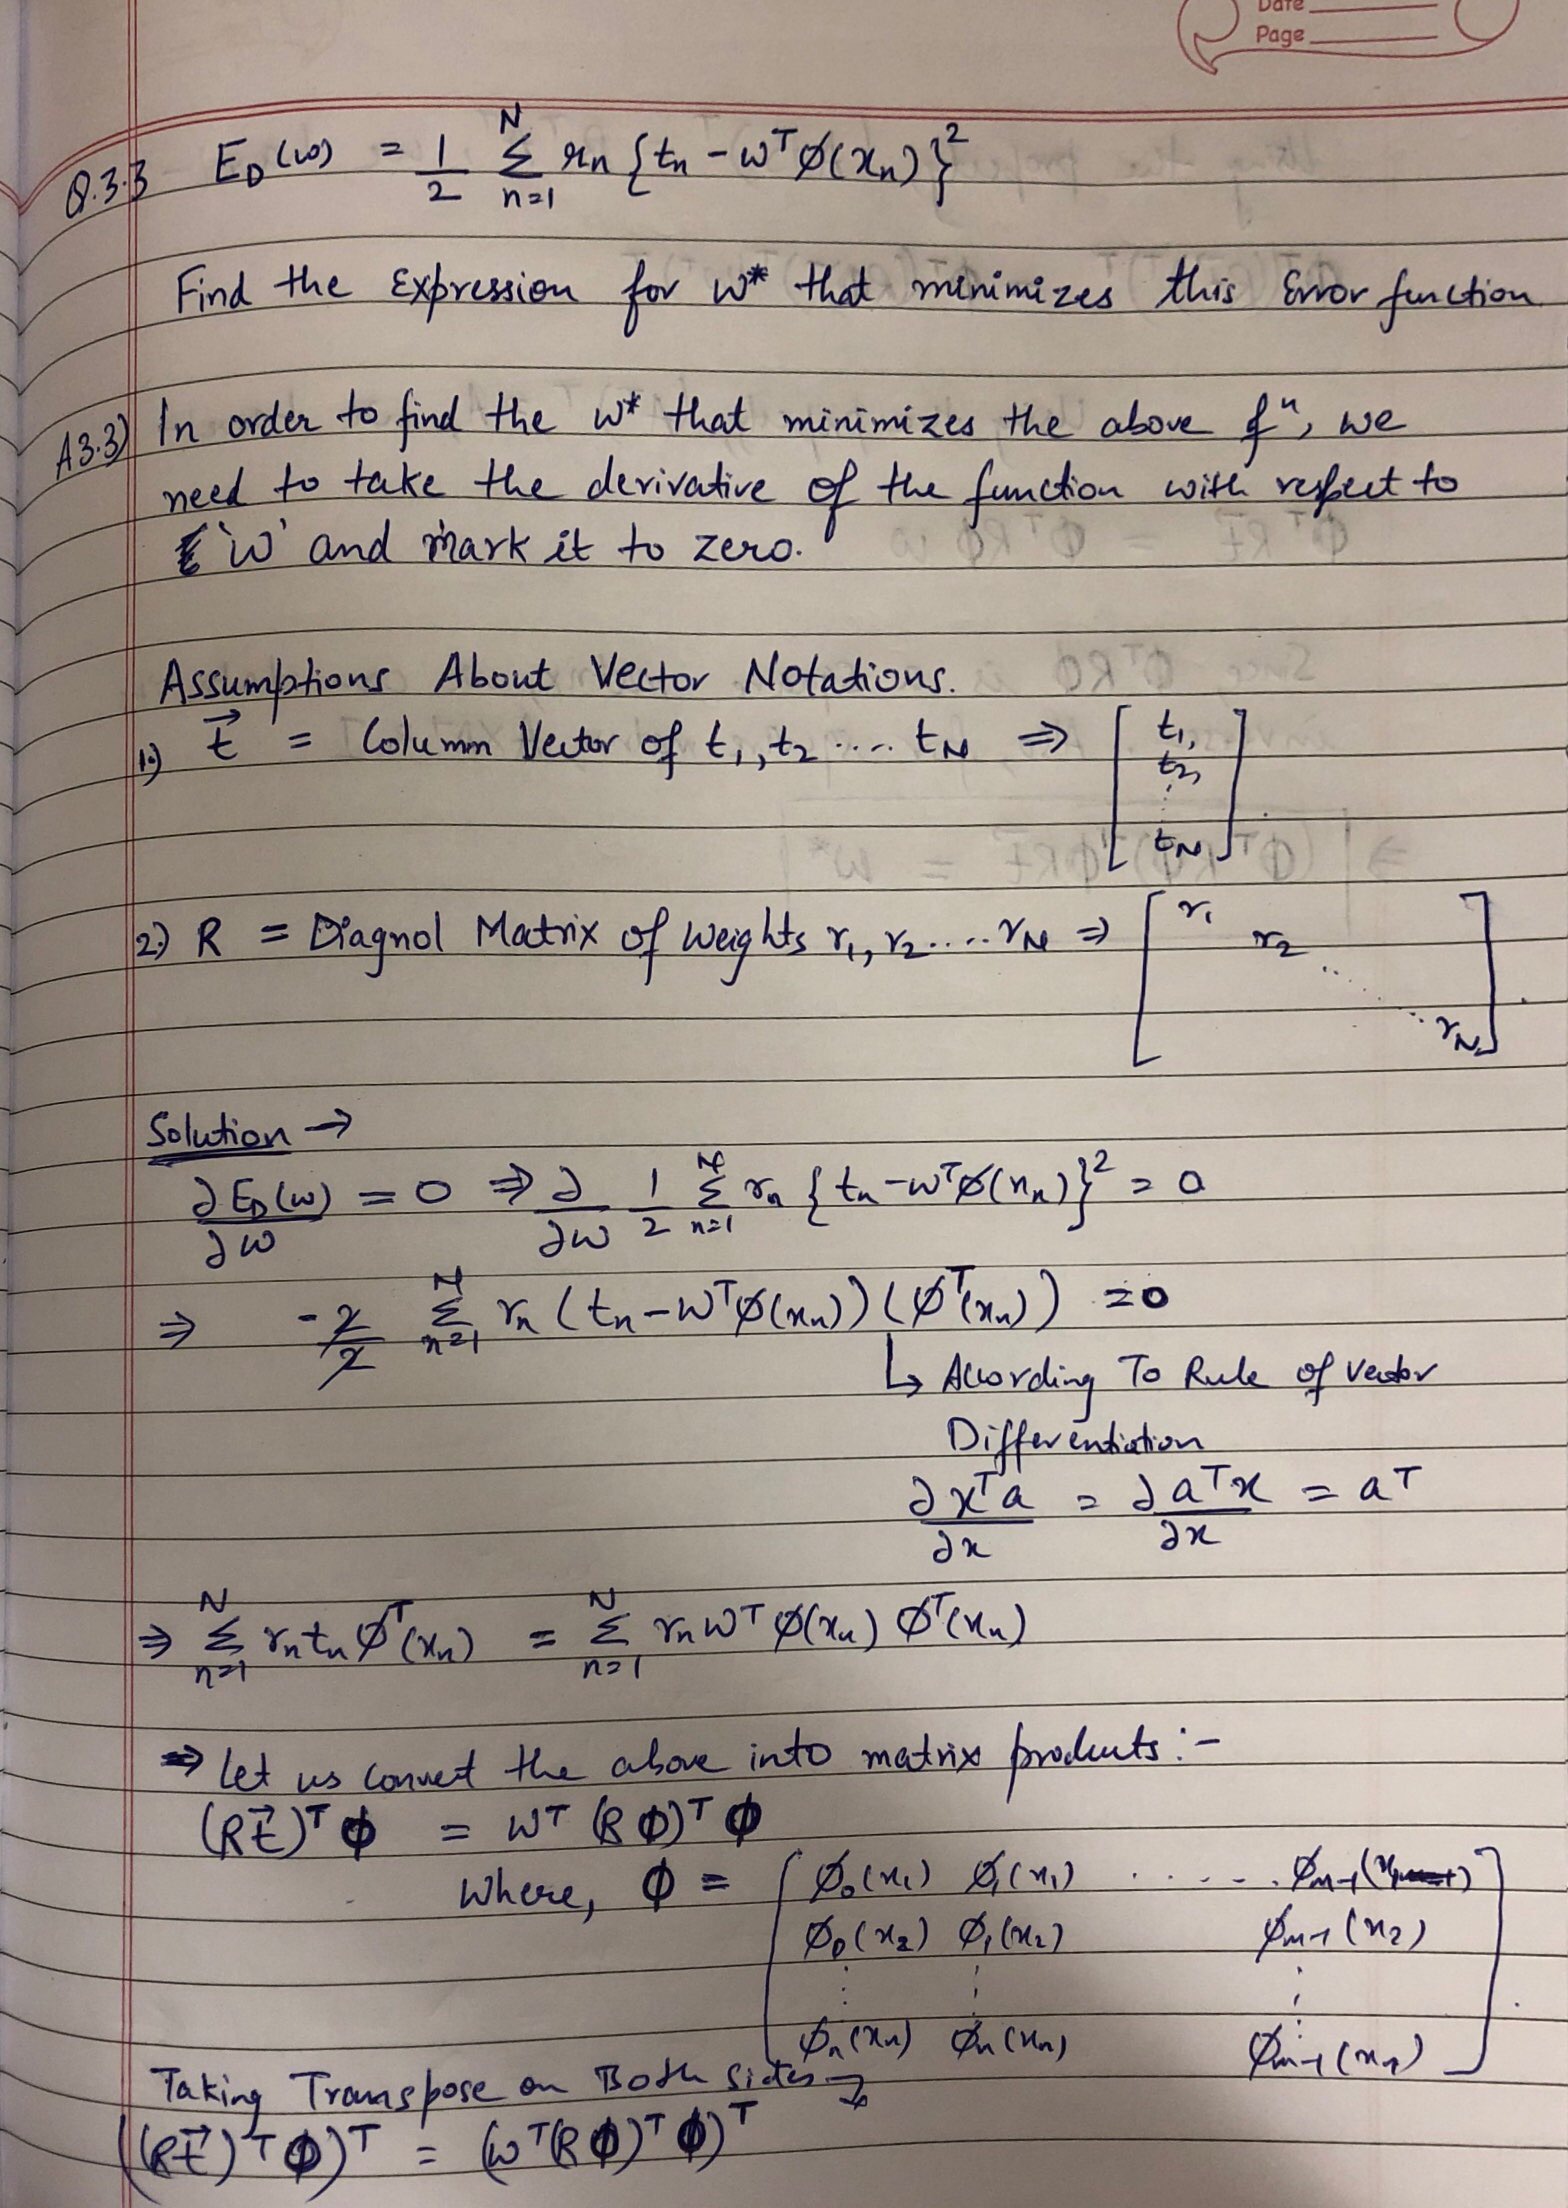 Date
Page
Q.3.3 E_D(w) = 1/2 Σ_{n=1}^{N} r_n {t_n - w^T ø(x_n)}^2
Find the Expression for w* that minimizes this Error function
A3.3) In order to find the w* that minimizes the above f^n, we
need to take the derivative of the function with respect to
'w' and mark it to zero.
Assumptions About Vector Notations.
1.) t⃗ = Column Vector of t_1, t_2 .... t_N ⇒ [ t_1, t_2, ⋮ t_N ]
2.) R = Diagnol Matrix of Weights r_1, r_2 ..... r_N ⇒ [ r_1 r_2 ... r_N ]
Solution →
∂E_D(w)/∂w = 0 ⇒ ∂/∂w 1/2 Σ_{n=1}^{N} r_n {t_n - w^T ø(x_n)}^2 = 0
⇒ -2/2 Σ_{n=1}^{N} r_n (t_n - w^T ø(x_n)) (ø^T(x_n)) = 0
↳ According To Rule of Vector
Differentiation
∂x^T a/∂x = ∂a^T x/∂x = a^T
⇒ Σ_{n=1}^{N} r_n t_n ø^T(x_n) = Σ_{n=1}^{N} r_n w^T ø(x_n) ø^T(x_n)
⇒ Let us convert the above into matrix products :-
(R t⃗)^T Φ = w^T (R Φ)^T Φ
Where, Φ = [ ø_0(x_1) ø_1(x_1) ...... ø_{m-1}(x_1)
ø_0(x_2) ø_1(x_2) ø_{m-1}(x_2)
⋮ ⋮ ⋮
ø_n(x_n) ø_n(x_n) ø_{m-1}(x_n) ]
Taking Transpose on Both sides →
((R t⃗)^T Φ)^T = (w^T (R Φ)^T Φ)^T